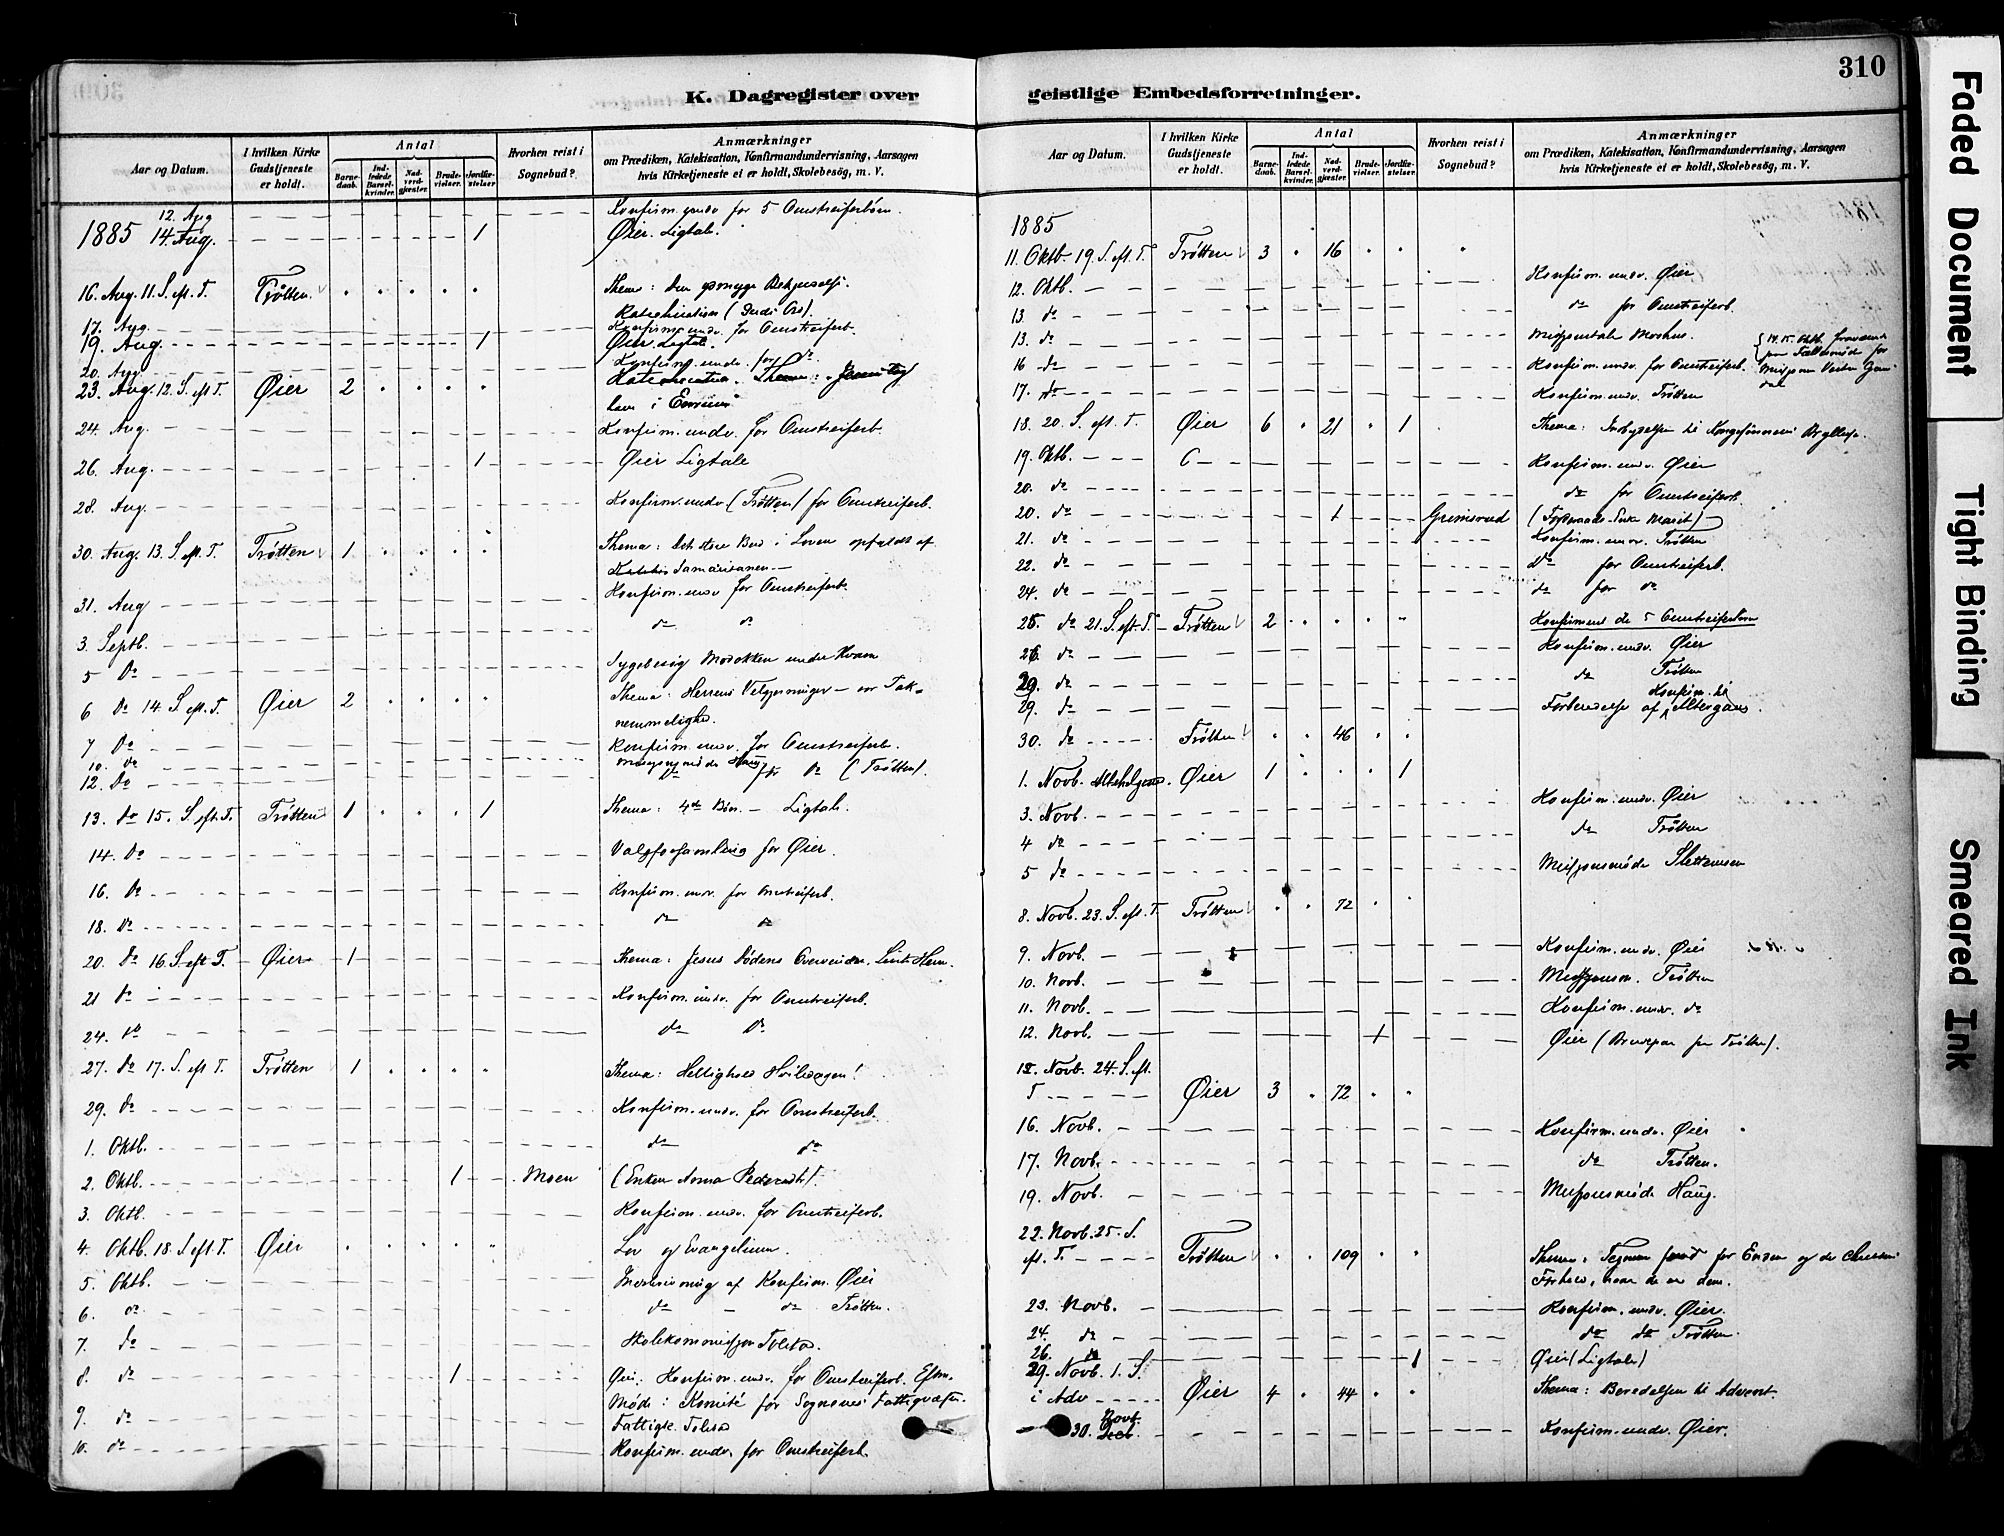 310
K. Dagregister over
geistlige Embedsforretninger.
Faded Document
Tight Binding
Smeared Ink
Aar og Datum.
I hvilken Kirke Gudstjeneste er holdt.
Antal
Barnedaab.
Indledede Barselkvinder.
Nadverdgjæster.
Brudevielser.
Jordfæstelser
Hvorhen reist i Sognebud?
Anmærkninger
om Prædiken, Katekisation, Konfirmandundervisning, Aarsagen
hvis Kirketjeneste ei er holdt, Skolebesög, m. V.
12. Aug Konfirm. undv for 5 Omstreiferbörn.
1885 14. Aug. 1 Øier. Ligtale.
16. Aug. 11. S. eft. T. Trötten. Thema: Den
17. Aug. Konfirm. undv. for Omstreiferb.
19. Aug. 1 Øier Ligtale.
20. Aug. Konfirm. undv. for do
23. Aug. 12. S. eft T. Øier 2
24. Aug. Konfirm. undv. for Omstreiferb.
26. Aug. 1 Øier Ligtale
28. Aug. Konfirm. undv. (Trötten) for Omstreiferb.
30. Aug. 13. S. eft. T. Trötten 1 Thema: Det store Bud i Loven opfyldt af
Samaritanen.
31. Aug Konfirm. undv for Omstreiferb.
3. Septb. do do
5 Do Sygebesög under Kvam
6 Do 14 S. eft. T. Øier 2 Thema: Herrens Velgjerninger - vor Tak-
nemmelighed.
7 Do Konfirm. undv. for Omstreiferb.
10. do Haug
12. Do do for do (Trötten).
13. do 15. S. eft. T. Trötten 1 1 Thema: 4de Bön. - Ligtale.
14. Do Valgforsamling for Øier.
16. Do Konfirm. undv. for Omstreiferb.
18. Do do do
20. Do 16. S. eft T. Øier 1 Thema: Jesus Dödens Overvinder, Livets Herre.
21 Do Konfirm. undv. for Omstreiferb.
24. do do do
27. do 17. S. eft T. Trötten 1 Thema: Helligholde Hviledagen!
29. do Konfirm. undv. for Omstreiferb.
1. Oktb. do do
2. Oktb. 1 Moen (Enken Anna Pedersdt).
3. Oktb. Konfirm. undv. for Omstreiferb.
4. Oktb. 18 S eft. T. Øier Lov og Evangelium.
5. Oktb. af Konfirm. Øier
6. do do - do Trötten.
7. do Skolekommission Tolstad.
8. do 1 Øier. Konfirm. undv. for Omstreiferb. Eftm.
Möde i Komité for Sognenes Fattigvæsen.
9. do Fattigk. Tolstad
10. do Konfirm. undv. for Omstreiferb.
Aar og Datum.
I hvilken Kirke Gudstjeneste er holdt.
Antal
Barnedaab.
Indledede Barselkvinder.
Nadverdgjæster.
Brudevielser.
Jordfæstelser.
Hvorhen reist i Sognebud?
Anmærkninger
om Prædiken, Katekisation, Konfirmandundervisning, Aarsagen
hvis Kirketjeneste ei er holdt, Skolebesög, m. V.
1885
11. Oktb. 19. S. eft. T. Trötten 3 16
12. Oktb. Konfirm. undv. Øier
13 do do for Omstreiferb.
13. do Moshus.
16 do Konfirm. undv. for Omstreiferb.
17. do Konfirm. undv. Trötten
18. 20. S. eft. T. Øier 6 21 1 Thema: Indbydelsen til Kongesönnens Bryllup.
19. Oktb. Konfirm. undv. Øier
20. do do for Omstreiferb.
20. do 1 Grimsrud
21. do Konfirm. undv. Trötten
22. do do for Omstreiferb.
24. do do for do
25. do 21. S. eft. T. Trötten 2 Konfirmeret de 5 Omstreiferbörn
26. do Konfirm. undv. Øier
29. do do Trötten
29. do Forberedelse af Konfirm. til Altergang.
30. do Trötten 46
1. Novb. Allehelgens. Øier 1 1
3. Novb. Konfirm. undv. Øier
4 do do Trötten
5 do Missionsmöde Slettemoen
8. Novb. 23. S. eft. T. Trötten 72
9. Novb. Konfirm. undv. Øier
10. Novb. Missionsm. Trötten
11. Novb. Konfirm. undv. do
12. Novb. 1 Øier (Brudepar fra Trötten).
15. Novb. 24. S. eft.
T Øier 3 72
16. Novb. Konfirm. undv. Øier
17. Novb. do Trötten.
19. Novb. Missionsmöde Haug.
22. Novb. 25. S.
eft. T. Trötten 109 Thema: Tegnene for Enden og de Christnes
Forhold, naar de er dem.
23. Novb. Konfirm. undv. Øier.
24. do do do Trötten.
26. do 1 Øier (Ligtale)
29. Novb. 1. S.
i Adv Øier 4 44 Thema: Beredelsen til Advent.
30. Novb. Konfirm. undv. Øier.